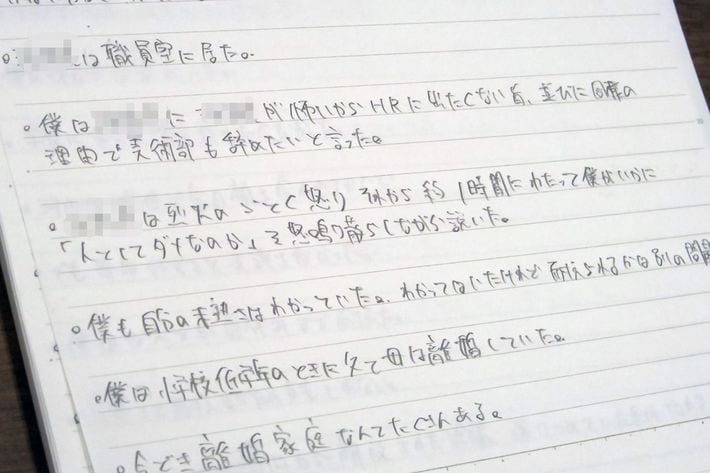 は職員室に居た。
僕は に が怖いからHRに出たくない旨、並びに同様の
理由で美術部も辞めたいと言った。
は烈火のごとく怒り それから約1時間にわたって僕がいかに
「人としてダメなのか」を怒鳴り散らしながら説いた。
僕も自分の未熟さはわかっていた。わかってはいたけれど耐えられるかは別の問題
僕は小学校低学年のときに父と母は離婚していた。
今どき離婚家庭なんてたくさんある。